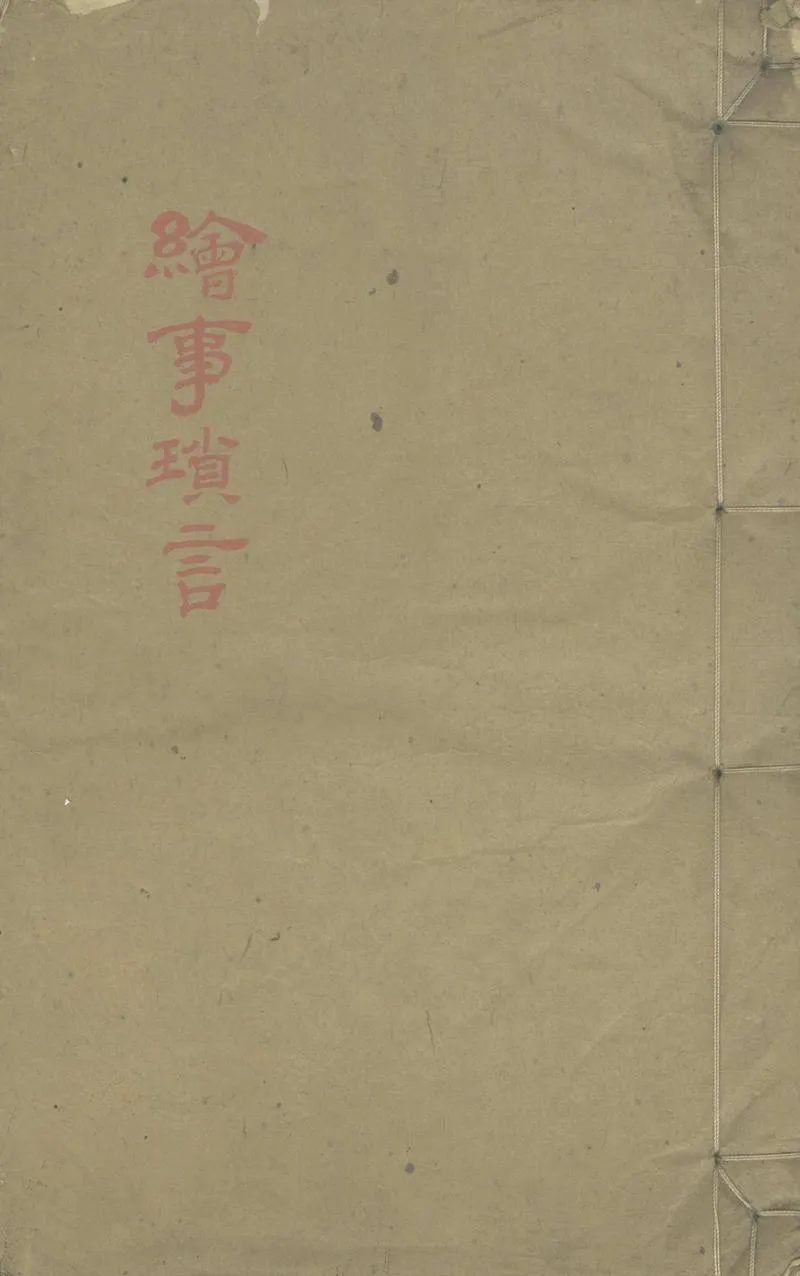 繪事瑣言